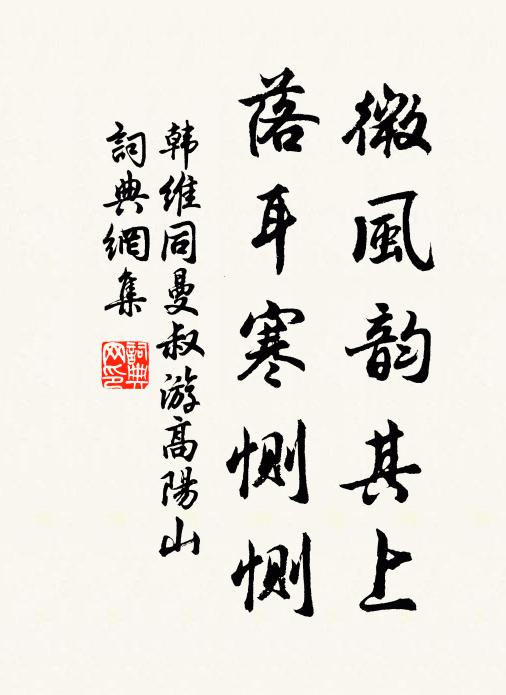 微風韵其上
落耳寒惻惻
韩维同曼叔游高陽山
詞典網集
詞典
网印